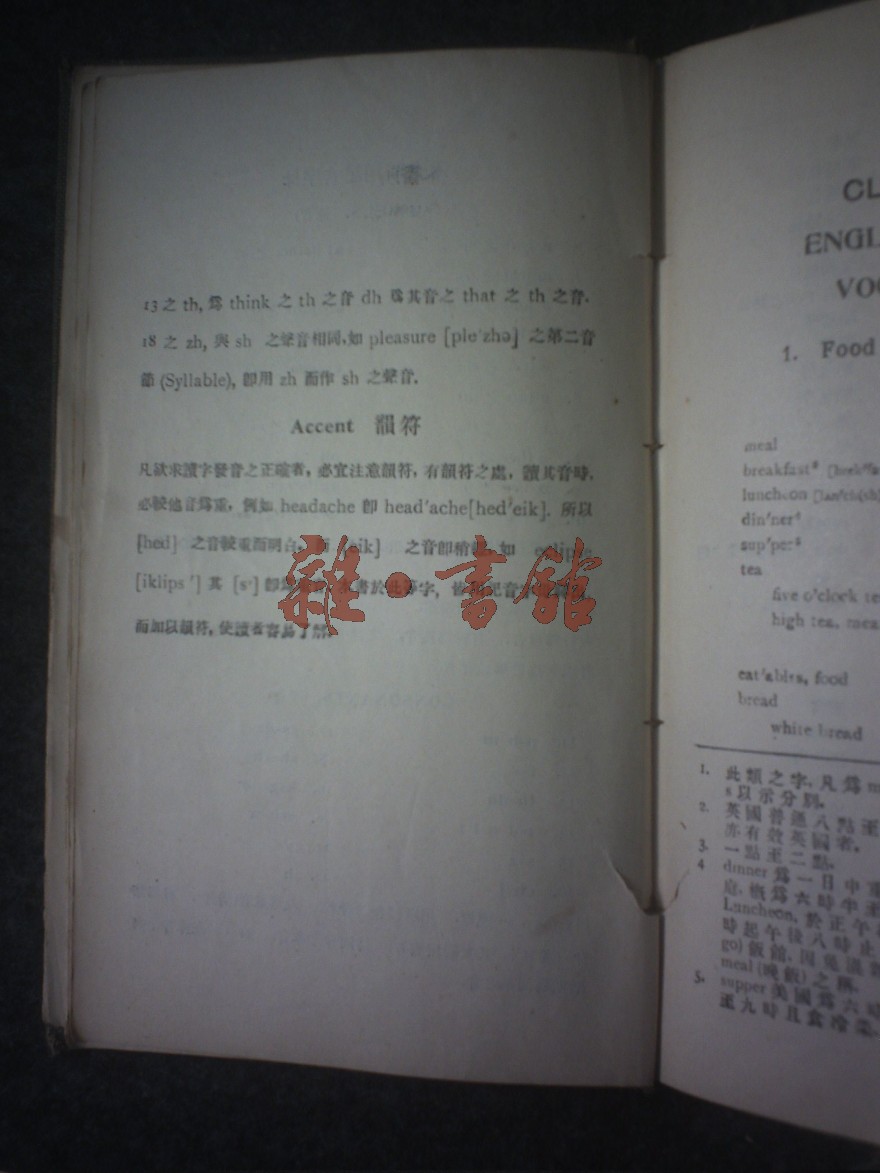 13 之 th, 爲 think 之 th 之音 dh 爲其音之 that 之 th 之音.
18 之 zh, 與 sh 之聲音相同, 如 pleasure [ple'zhə] 之第二音
節 (Syllable), 卽用 zh 而作 sh 之聲音.
Accent 韻符
凡欲求讀字發音之正確者, 必宜注意韻符, 有韻符之處, 讀其音時,
必較他音爲重, 例如 headache 卽 head'ache[hed'eik]. 所以
[hed] 之音較重而明白, [eik] 之音卽稍 如
[iklips'] 其 [s'] 卽 於此 字,
而加以韻符, 使讀者容易了解.
雜·書館
CL
ENGL
VO
1. Food
meal
breakfast
luncheon
din'ner⁴
sup'per⁵
tea
five o'clock te
high tea, mea
eat'ables, food
bread
white bread
1. 此類之字, 凡爲
s 以示分別.
2. 英國普通八點至
亦有效英國者.
3. 一點至二點.
4 dinner 爲一日中
庭, 概爲六時半至
Luncheon, 於正午
時起午後八時止
go) 飯館, 因
meal (晚飯) 之
5. supper 美國爲六時
至九時且食冷菜.